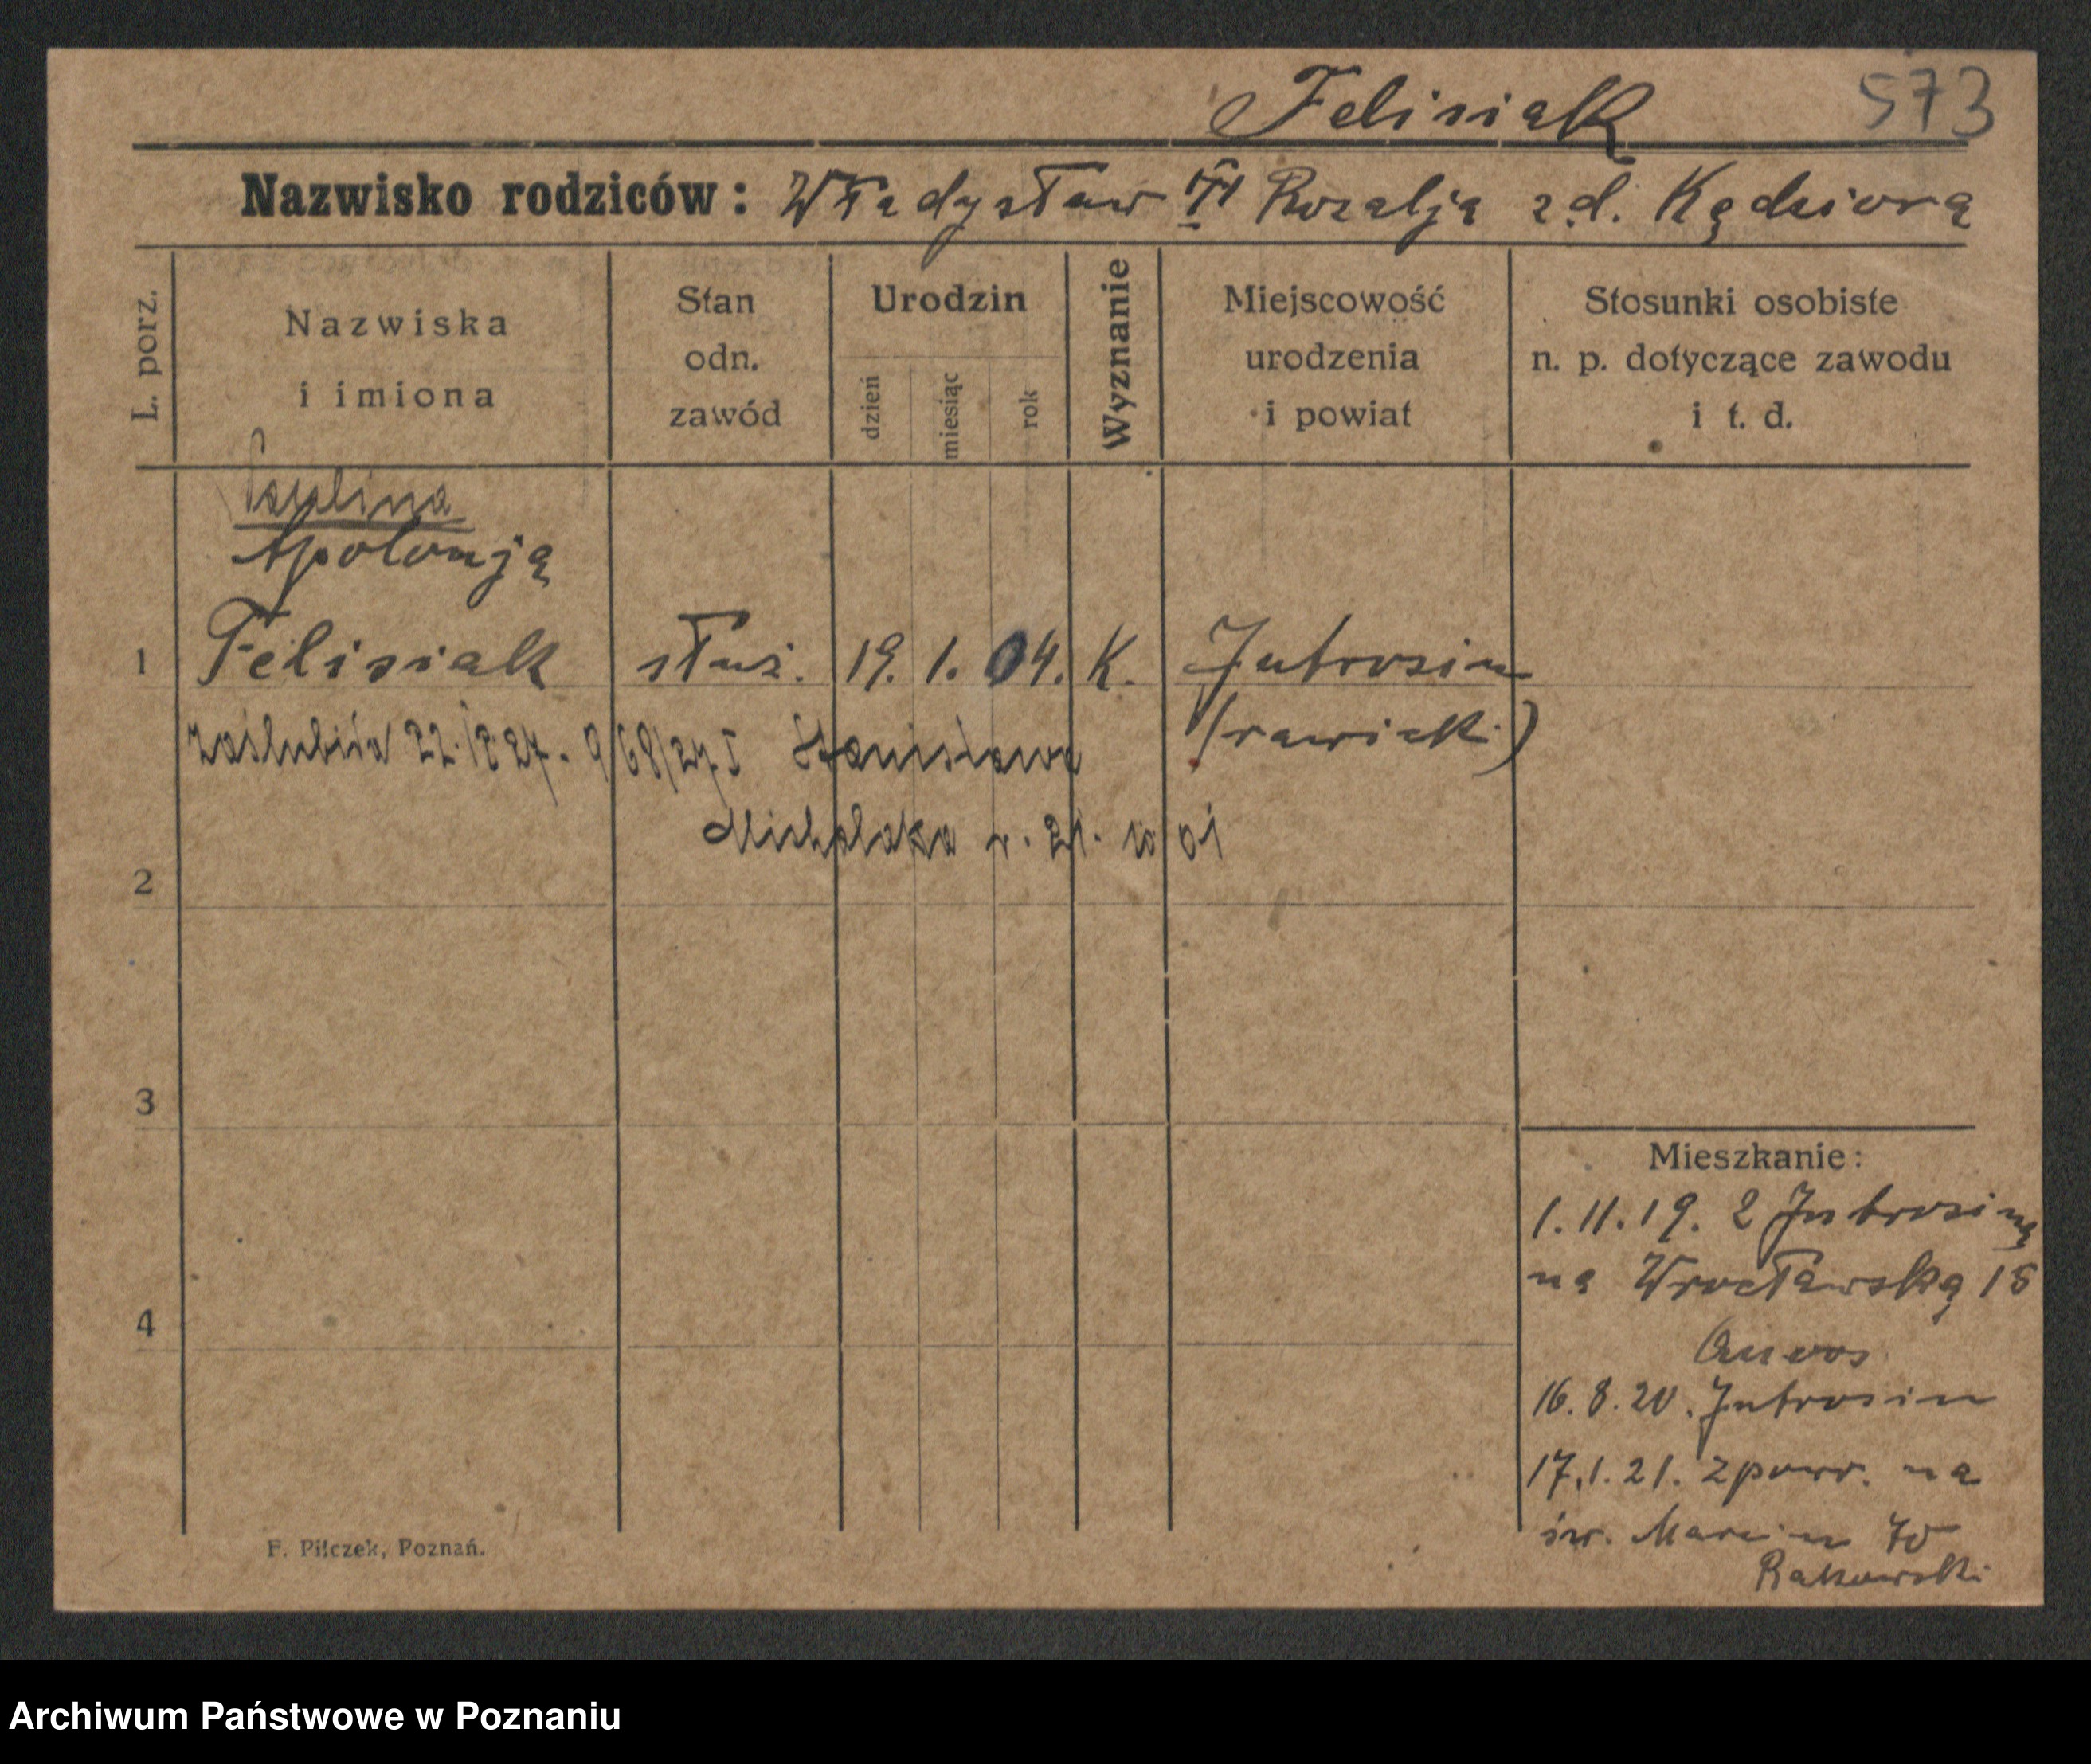 Felisiak 573
Nazwisko rodziców: Władysław i Rozalja z d. Kędziora
L. porz.
Nazwiska
i imiona
Stan
odn.
zawód
Urodzin
dzień
miesiąc
rok
Wyznanie
Miejscowość
urodzenia
i powiat
Stosunki osobiste
n. p. dotyczące zawodu
i t. d.
Paulina
Apolonja
1 Felisiak służ. 19. 1. 04. K. Jutrosin
zaślubiła 22. 12 27. 968/27 I Stanisława (rawicki)
Michalaka r. 21. 10 01
2
3
4
Mieszkanie:
1.11.19. z Jutrosina
na Wrocławską 15
16.8.20. Jutrosin
17.1.21. zpowr. na
św. Marcin 70
Rakowski
F. Pilczek, Poznań.
Archiwum Państwowe w Poznaniu